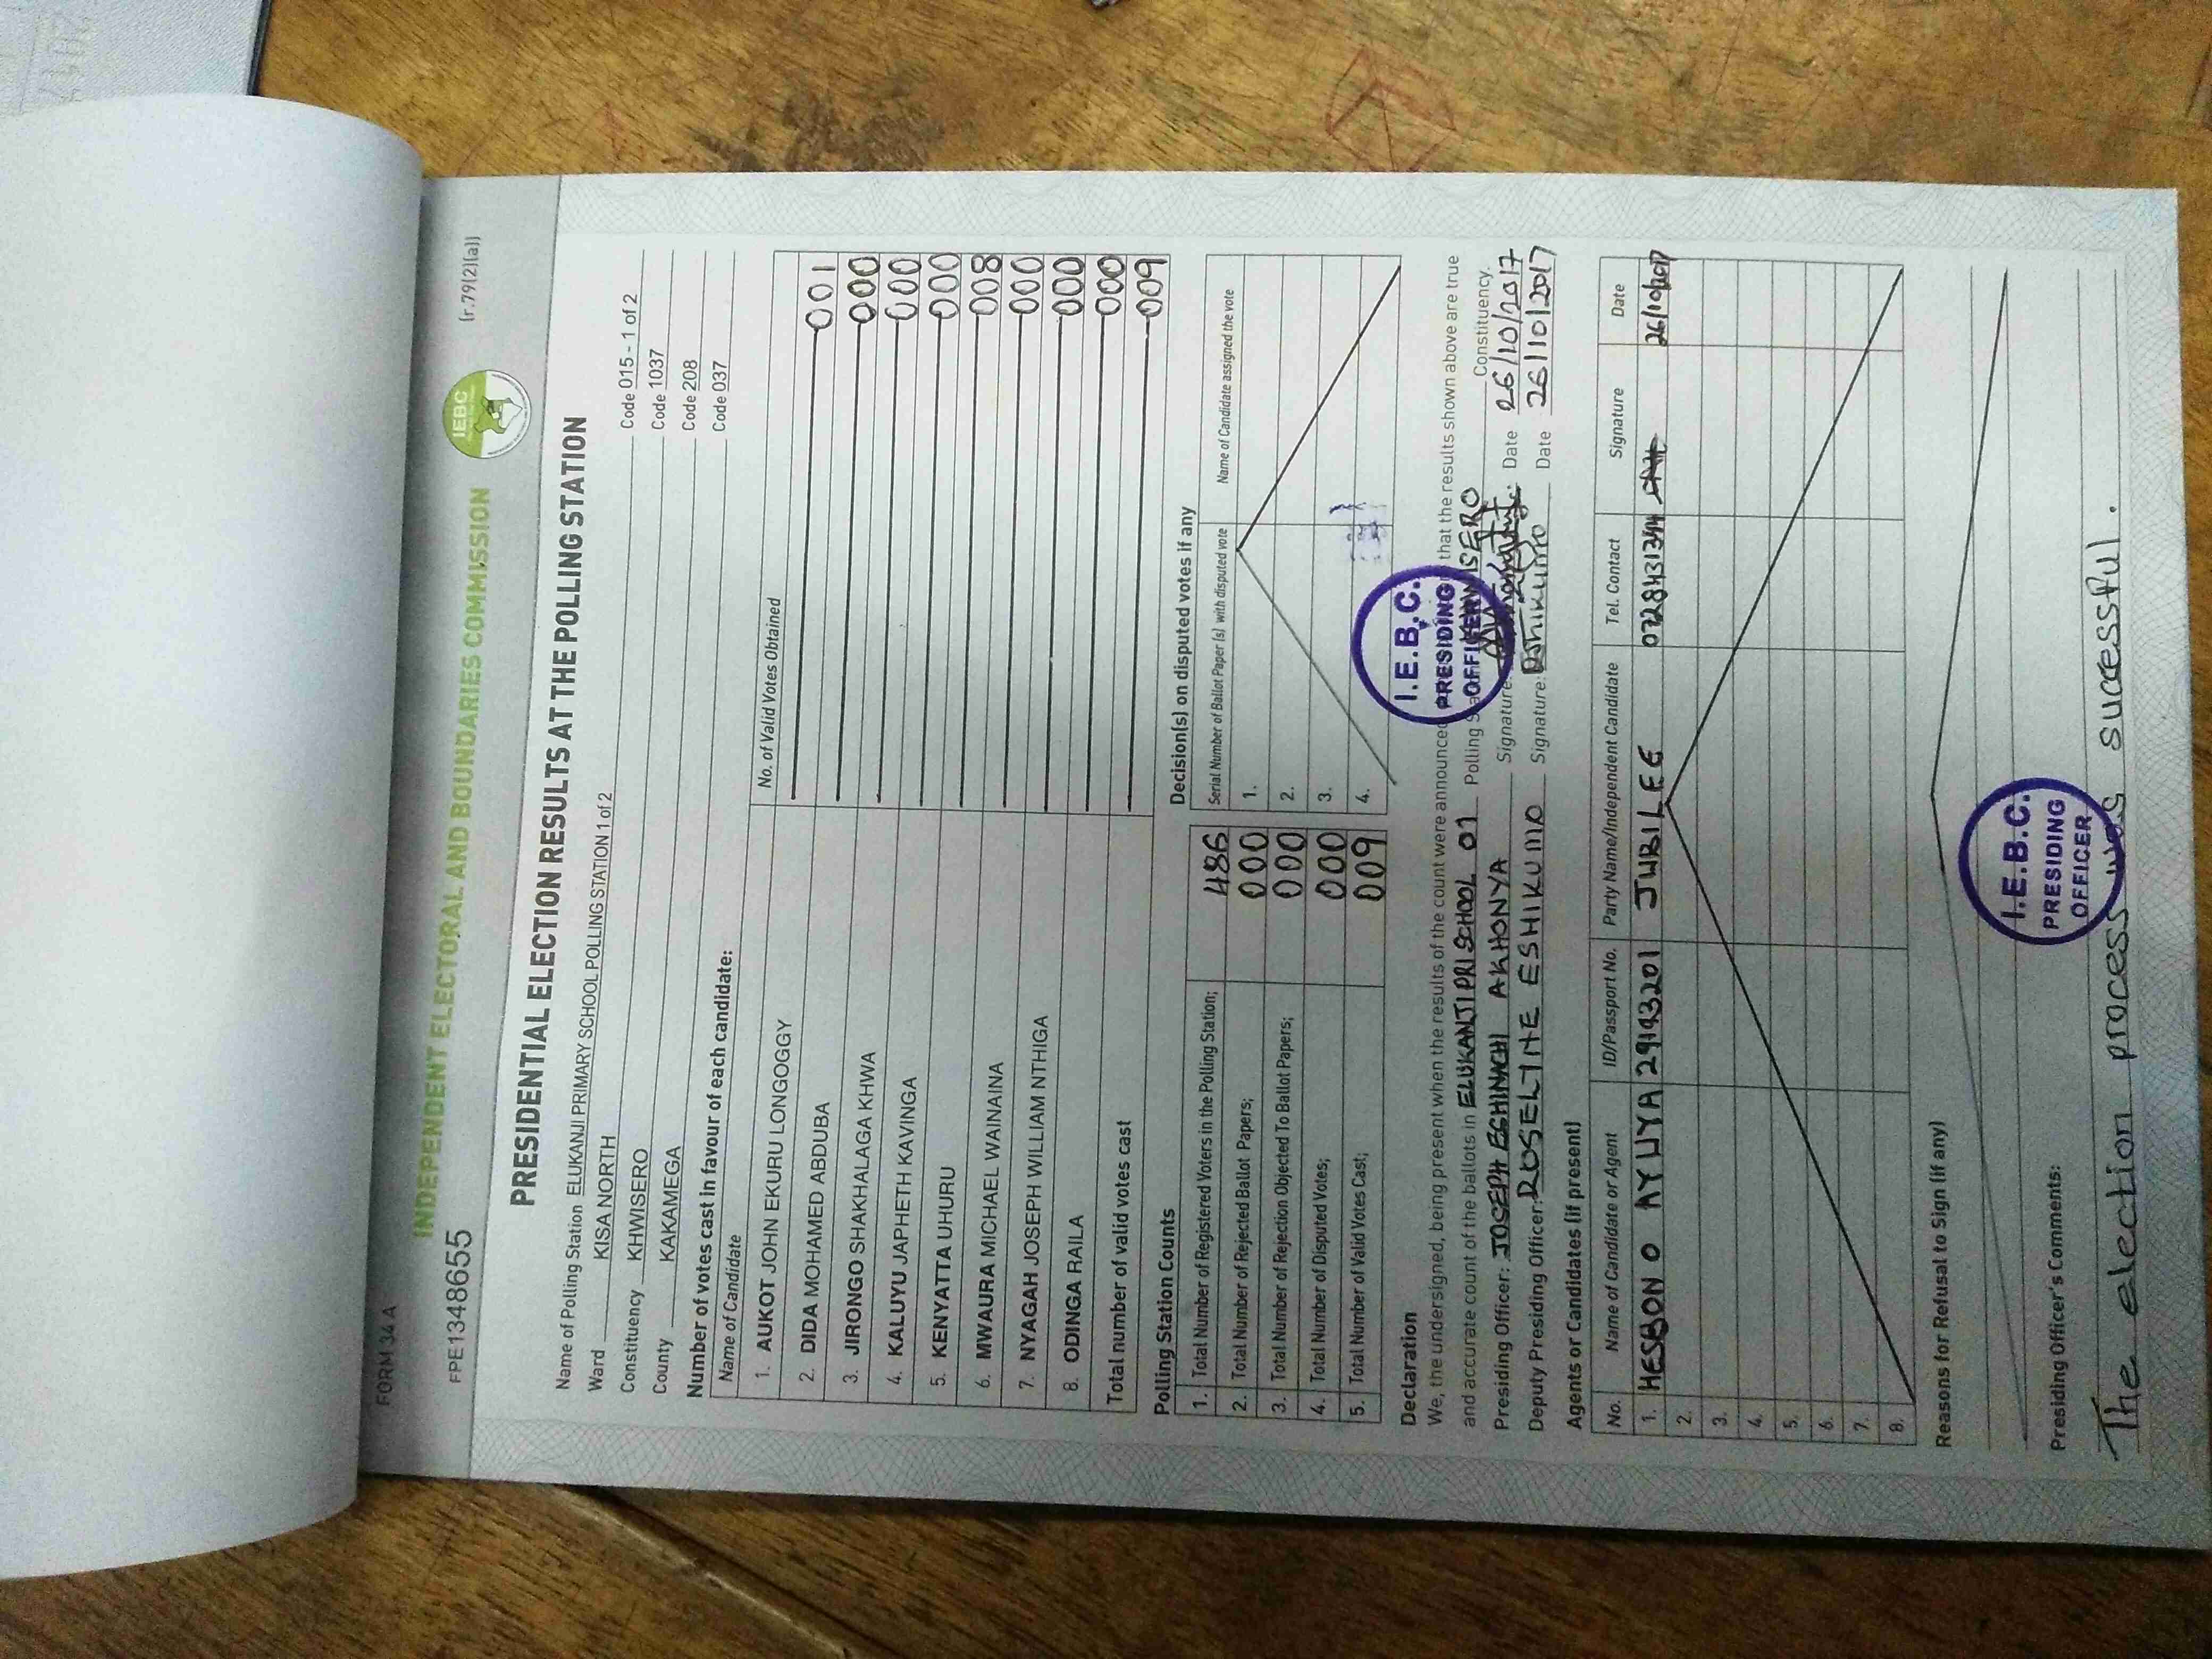 FORM 34 A
(r.79(2)(a))
INDEPENDENT ELECTORAL AND BOUNDARIES COMMISSION
IEBC
FPE13488655
PRESIDENTIAL ELECTION RESULTS AT THE POLLING STATION
Name of Polling Station ELUKANJI PRIMARY SCHOOL POLLING STATION 1 of 2 Code 015 - 1 of 2
Ward KISA NORTH Code 1037
Constituency KHWISERO Code 208
County KAKAMEGA Code 037
Number of votes cast in favour of each candidate:
Name of Candidate No. of Valid Votes Obtained
1. AUKOT JOHN EKURU LONGOGGY 001
2. DIDA MOHAMED ABDUBA 000
3. JIRONGO SHAKHALAGA KHWA 000
4. KALUYU JAPHETH KAVINGA 000
5. KENYATTA UHURU 008
6. MWAURA MICHAEL WAINAINA 000
7. NYAGAH JOSEPH WILLIAM NTHIGA 000
8. ODINGA RAILA 000
Total number of valid votes cast 009
Polling Station Counts
1. Total Number of Registered Voters in the Polling Station; 486
2. Total Number of Rejected Ballot Papers; 000
3. Total Number of Rejection Objected To Ballot Papers; 000
4. Total Number of Disputed Votes; 000
5. Total Number of Valid Votes Cast; 009
Decision(s) on disputed votes if any
Serial Number of Ballot Paper (s) with disputed vote Name of Candidate assigned the vote
1.
2.
3.
4.
I.E.B.C. PRESIDING OFFICER
Declaration
We, the undersigned, being present when the results of the count were announced, that the results shown above are true
and accurate count of the ballots in ELUKANJI PRI SCHOOL 01 Polling KHWISERO Constituency.
Presiding Officer: JOSEPH ECHINACHI AKHONYA Signature: Date 26/10/2017
Deputy Presiding Officer: ROSELINE ESHIKUMO Signature: Date 26/10/2017
Agents or Candidates (if present)
No. Name of Candidate or Agent ID/Passport No. Party Name/Independent Candidate Tel. Contact Signature Date
1. HESBON O AYUYA 29193201 JUBILEE 26/10/2017
2.
3.
4.
5.
6.
7.
8.
Reasons for Refusal to Sign (if any)
I.E.B.C. PRESIDING OFFICER
Presiding Officer's Comments:
The election process was sucessful.